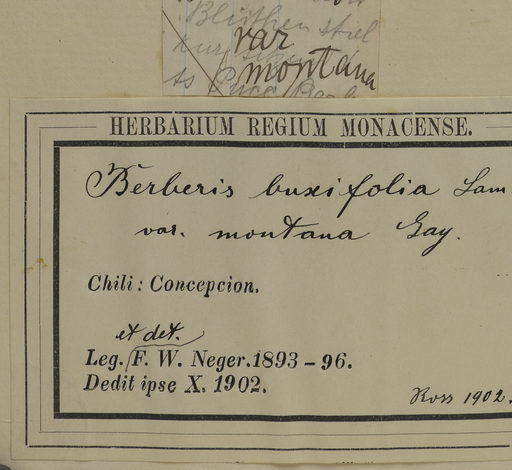 Blüthenstiel
var
montana
HERBARIUM REGIUM MONACENSE.
Berberis buxifolia Lam
var. montana Gay.
Chili: Concepcion.
et det.
Leg. F. W. Neger. 1893-96.
Dedit ipse X. 1902.
Ross 1902.